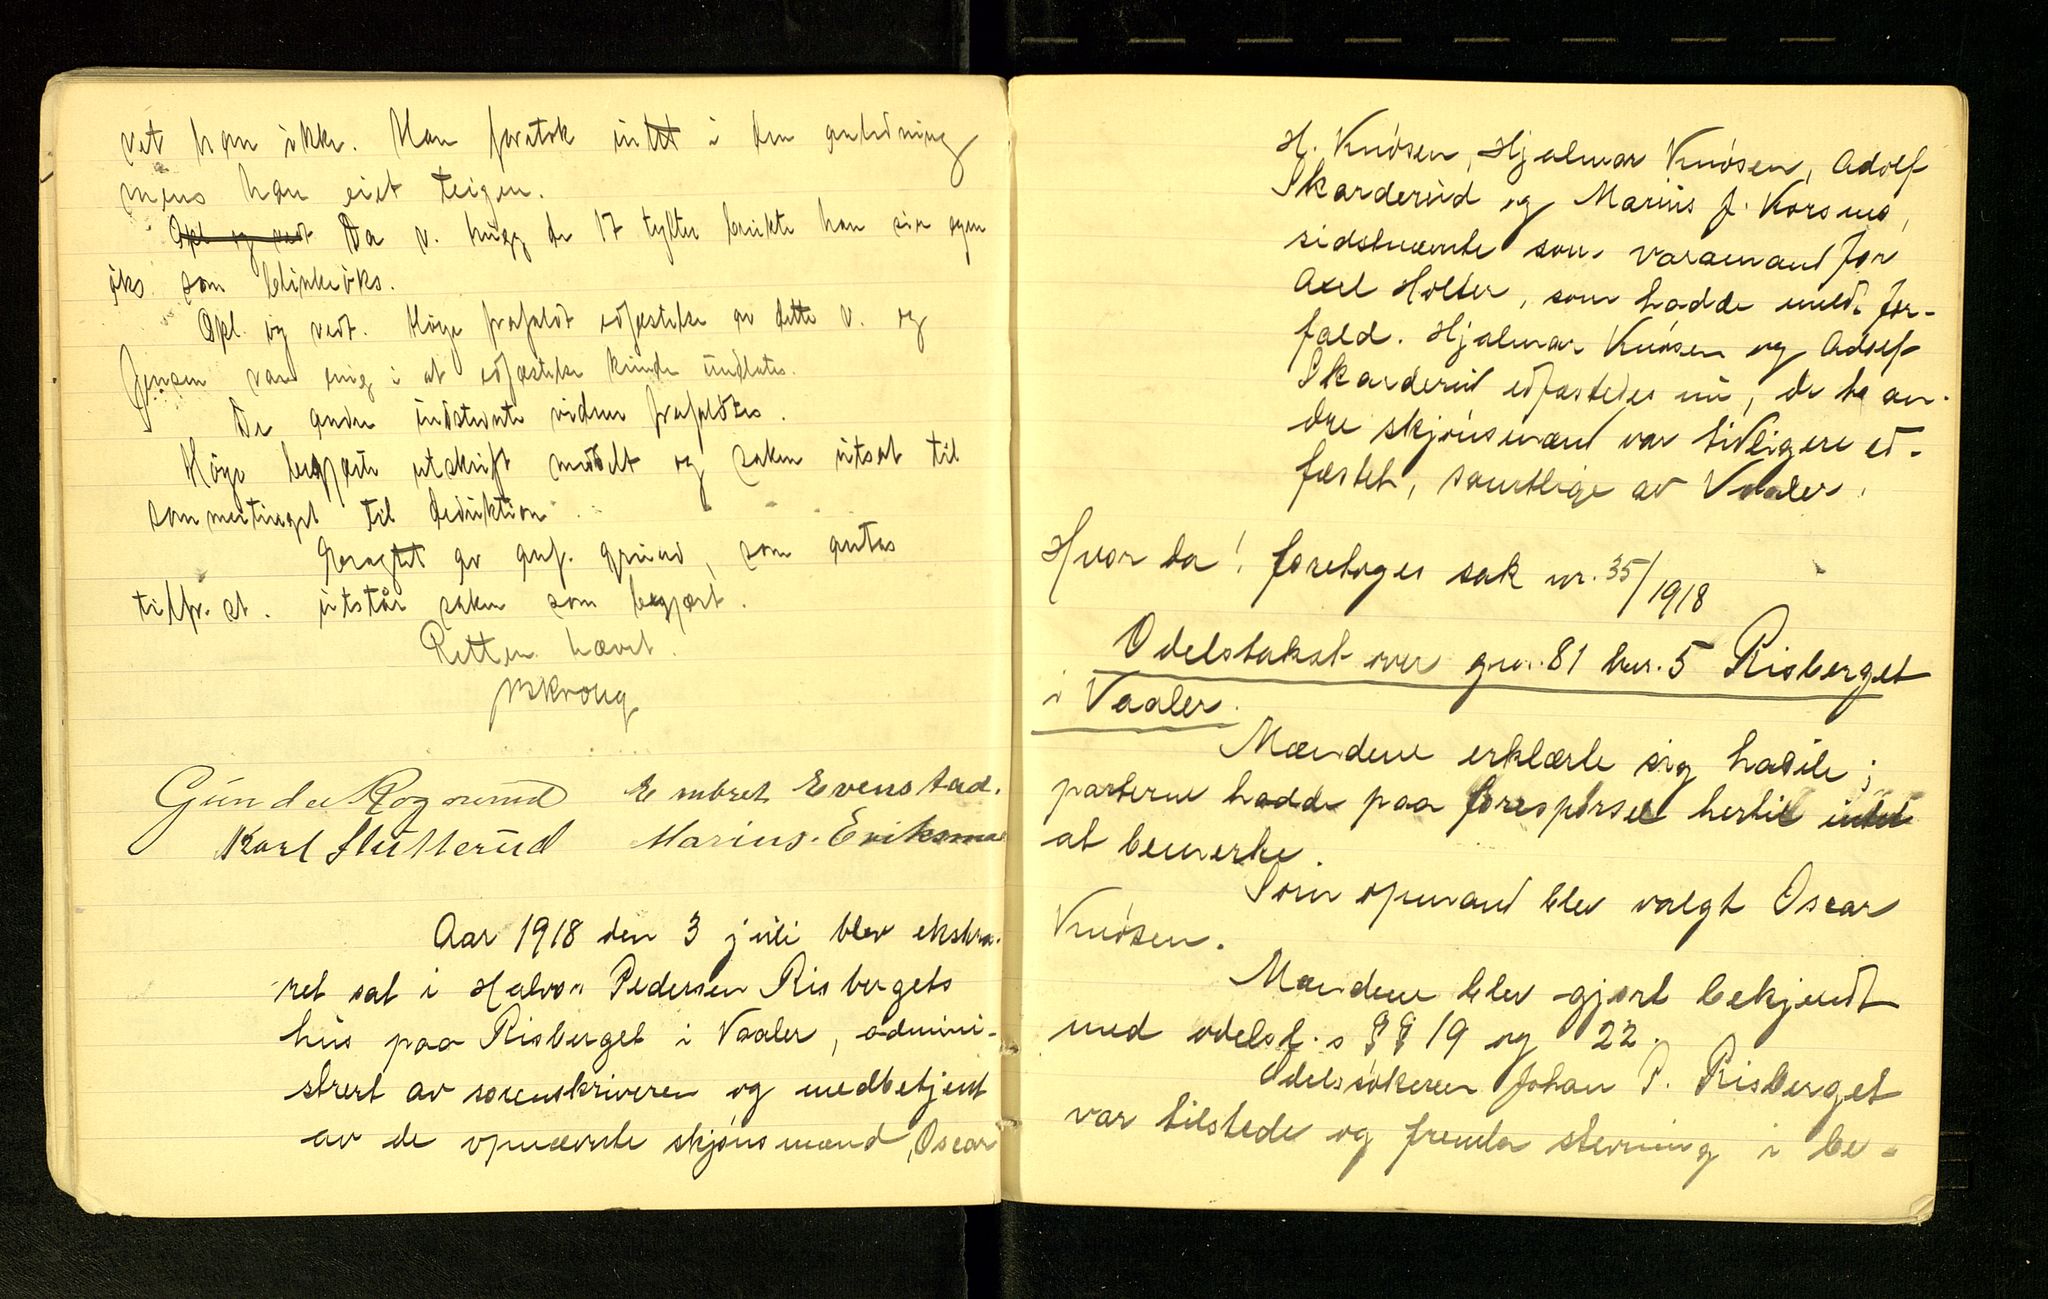 vet han ikke. Han foretok intet i den anledning
mens han eiet teigen.
Opl og vedt Da v. hugg de 17 tylter brukte han sin egen
øks som blinkeøks.
Opl. og vedt. Høye frafaldt edfæstelse av dette v. og
Jensen var enig i at edfæstelse kunde undlates.
De andre indstevnte vidner frafaldtes.
Høye begjærte utskrift meddelt og saken utsat til
sommertinget til deduktion.
Eragtet av anf. grund, som antas
tilfr. st. utstår saken som begjært.
Retten hævet.
Gunder Rogneruud Embret Evenstad.
Karl Slutterud Marius Eriksen
Aar 1918 den 3 juli blev ekstra-
ret sat i Halvor Pedersen Risbergets
hus paa Risberget i Vaaler, admini-
strert av sorenskriveren og medbetjent
av de opnævnte skjønsmænd, Oscar
H. Knøsen, Hjalmar Knøsen, Adolf
Skarderud og Marius J. Korsmo,
sidstnævnte som varamand for
Axel Holter, som hadde meldt for-
fald. Hjalmar Knøsen og Adolf
Skarderud edfæstedes nu, de to an-
dre skjønsmænd var tidligere ed-
fæstet, samtlige av Vaaler.
Hvor da! foretoges sak nr. 35/1918
Odelstakst over gnr. 81 bnr. 5 Risberget
i Vaaler.
Mændene erklærte sig habile;
parterne hadde paa forespørsel hertil intet
at bemerke.
Som opmand blev valgt Oscar
Knøsen.
Mændene blev gjort bekjendt
med odelsl.s §§ 19 og 22.
Odelssøkeren Johan P. Risberget
var tilstede og fremla stevning i be-